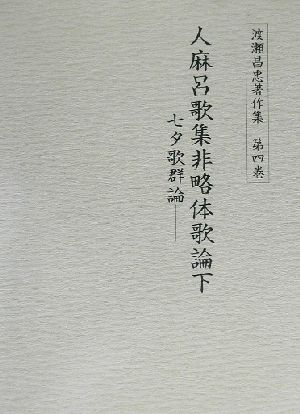 渡瀬昌忠著作集 第四巻
人麻呂歌集非略体歌論下
七夕歌群論――